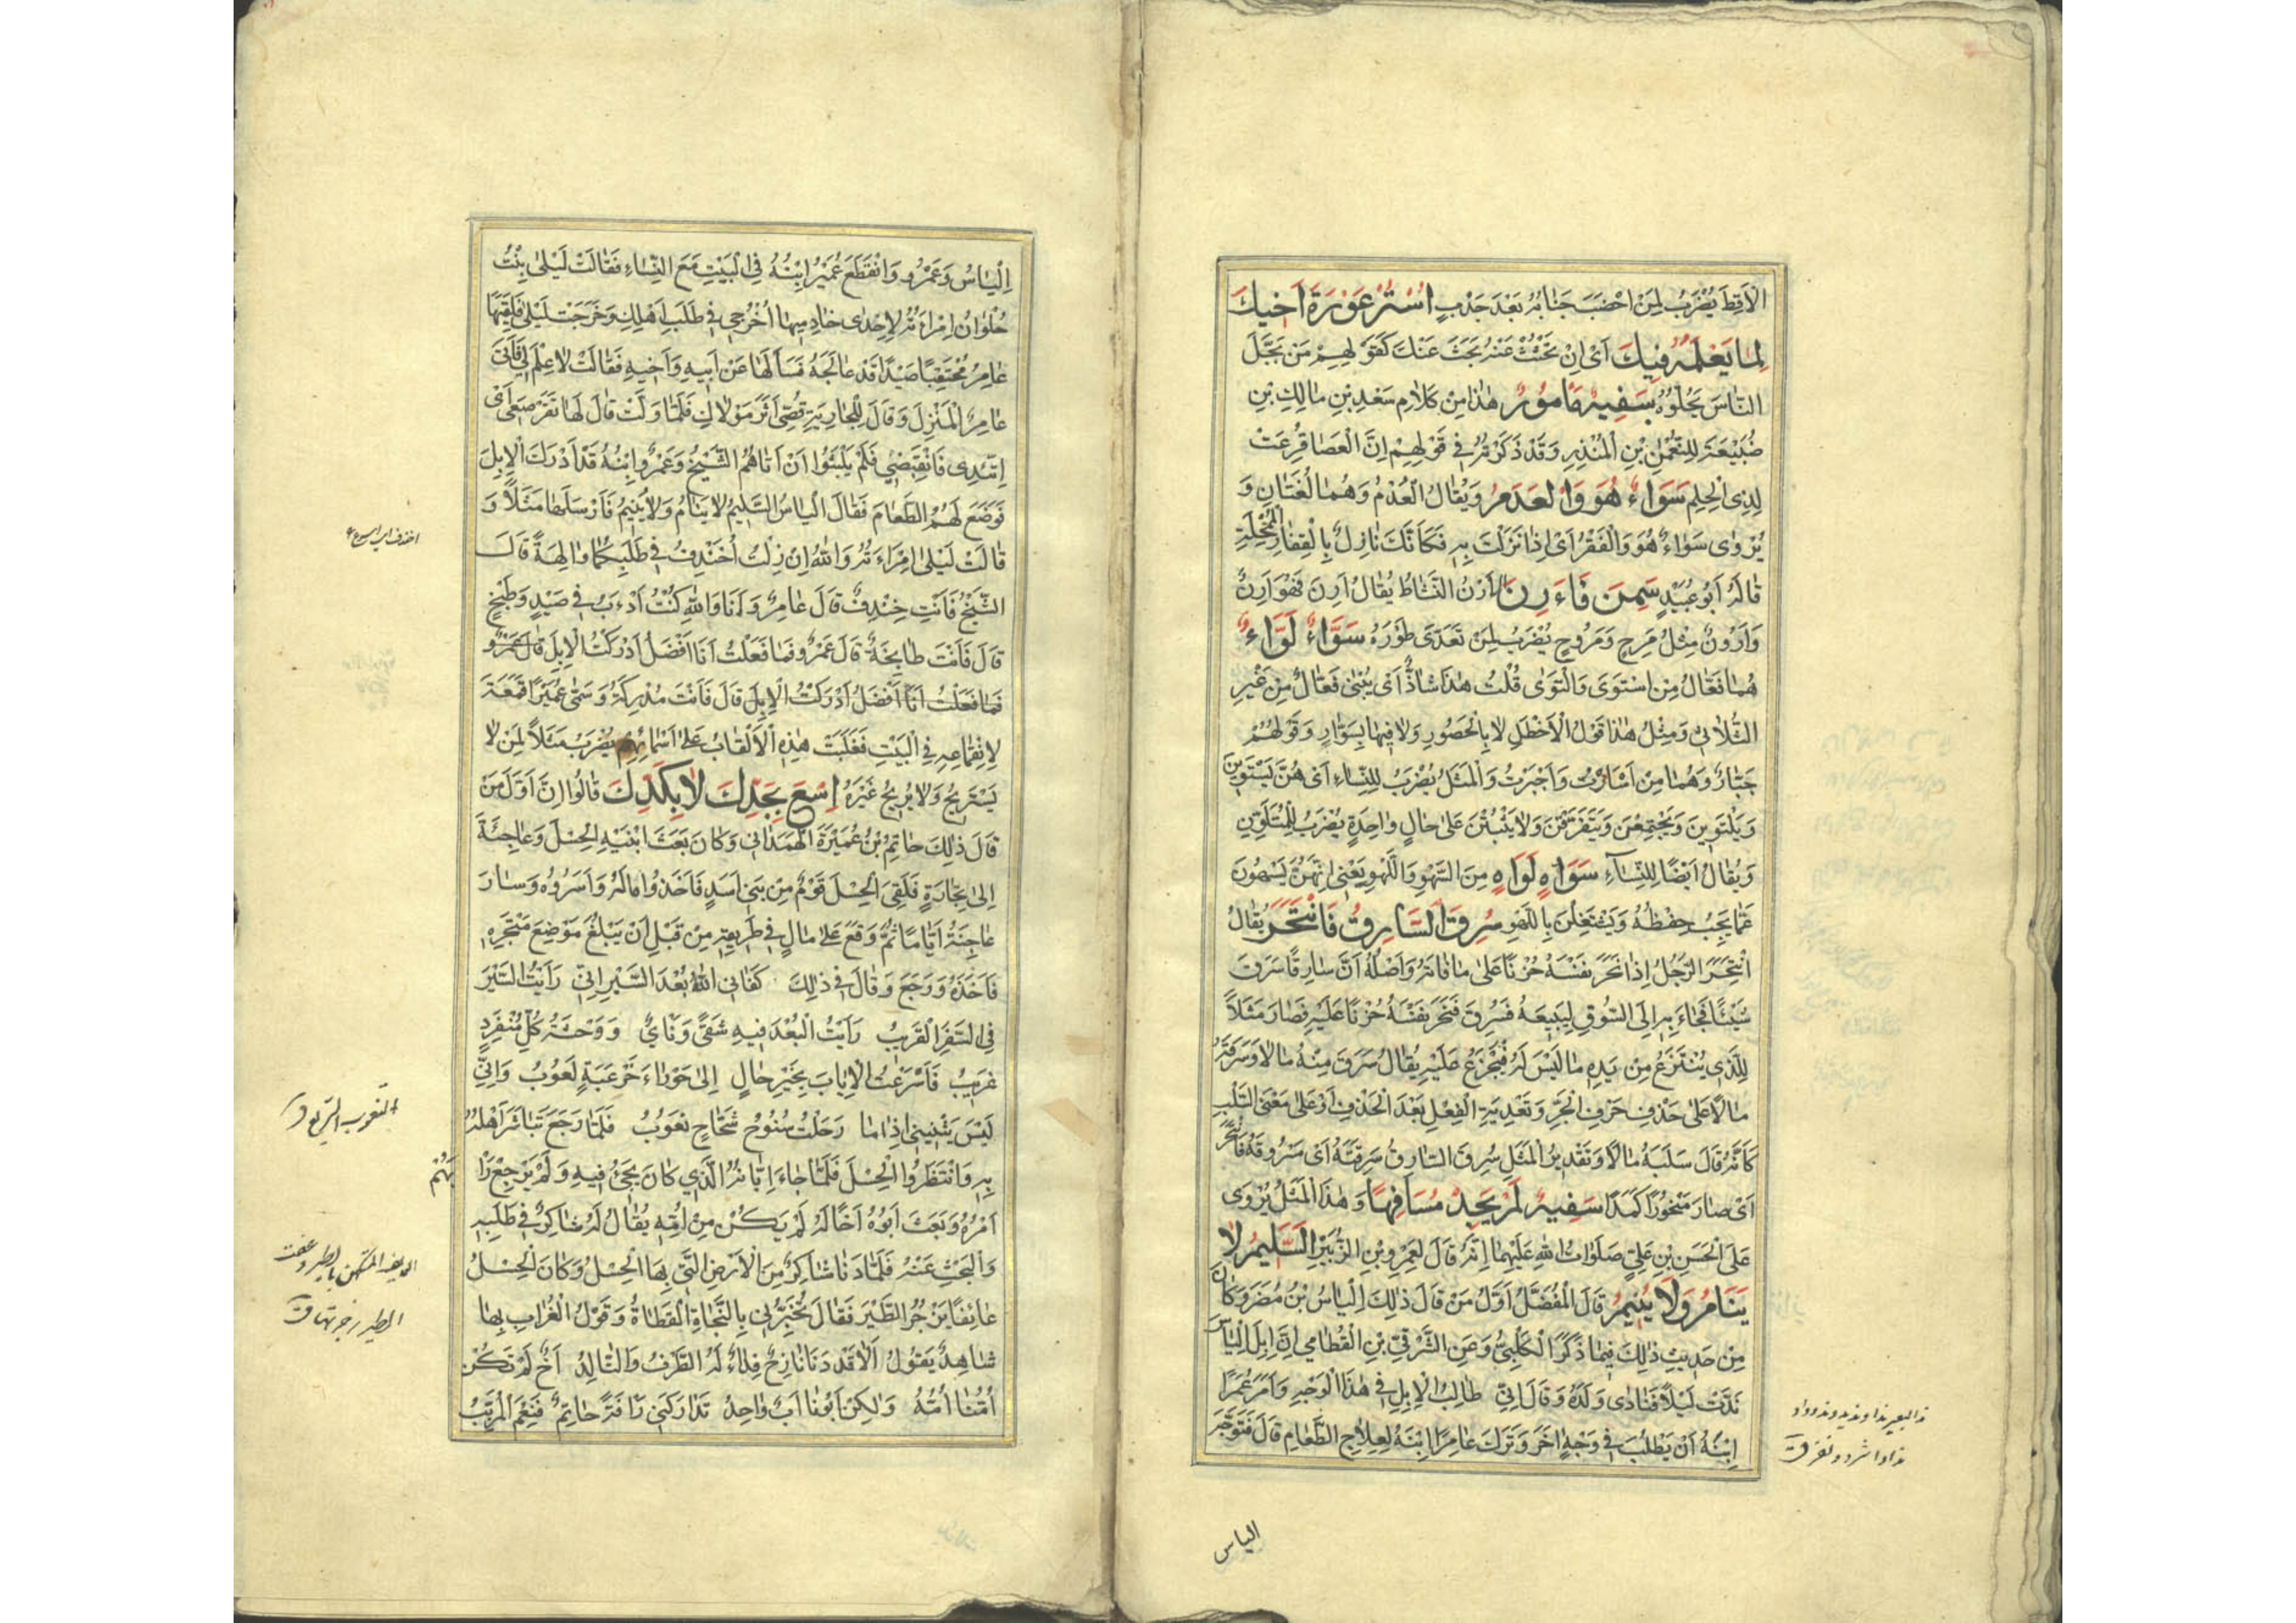 الْاَقِطَ يُضْرَبُ لِمَنْ اَخْصَبَ جَنَابُهُ بَعْدَ جَدْبٍ اُسْتُرْ عَوْرَةَ اَخِيكَ
لِمَا يَعْلَمُهُ فِيكَ اَىْ اِنْ بَحَثْتَ عَنْهُ بَحَثَ عَنْكَ كَقَوْلِهِمْ مَنْ نَجَلَ
النَّاسَ نَجَلُوهُ سَفِيهٌ مَأْمُورٌ هٰذَا مِنْ كَلَامِ سَعْدِ بْنِ مَالِكِ بْنِ
ضُبَيْعَةَ لِلنُّعْمٰنِ بْنِ الْمُنْذِرِ وَقَدْ ذَكَرْتُهُ فِى قَوْلِهِمْ اِنَّ الْعَصَا قُرِعَتْ
لِذِى الْحِلْمِ سَوَاءٌ هُوَ وَالْعَدَمُ وَيُقَالُ الْعُدْمُ وَهُمَا لُغَتَانِ وَ
يُرْوٰى سَوَاءٌ هُوَ وَالْفَقْرُ اَىْ اِذَا نَزَلْتَ بِهِ فَكَاَنَّكَ نَازِلٌ بِالْقِفَارِ الْمُمْحِلَةِ
قَالَهُ اَبُو عُبَيْدٍ سَمِنَ فَاَرِنَ الْاَرَنُ النَّشَاطُ يُقَالُ اَرِنَ فَهُوَ اَرِنٌ
وَاَرُونٌ مِثْلُ مَرِحٍ وَمَرُوحٍ يُضْرَبُ لِمَنْ تَعَدَّى طَوْرَهُ سَوَّاءٌ لَوَّاءٌ
هُمَا فَعَّالٌ مِنِ اسْتَوَى وَالْتَوَى قُلْتُ هٰذَا شَاذٌّ اَىْ يُبْنٰى فَعَّالٌ مِنْ غَيْرِ
الثُّلَاثِىِّ وَمِثْلُ هٰذَا قَوْلُ الْاَخْطَلِ لَا بِالْحَصُورِ وَلَا فِيهَا بِسَوَّارٍ وَقَوْلُهُمْ
جَبَّارٌ وَهُمَا مِنْ اَسْاَرْتُ وَاَجْبَرْتُ وَالْمَثَلُ يُضْرَبُ لِلنِّسَاءِ اَىْ هُنَّ يَسْتَوِينَ
وَيَلْتَوِينَ وَيَجْتَمِعْنَ وَيَتَفَرَّقْنَ وَلَا يَثْبُتْنَ عَلٰى حَالٍ وَاحِدَةٍ يُضْرَبُ لِلْمُتَلَوِّنِ
وَيُقَالُ اَيْضًا لِلنِّسَاءِ سَوَاهٍ لَوَاهٍ مِنَ السَّهْوِ وَاللَّهْوِ يَعْنِى اَنَّهُنَّ يَسْهُونَ
عَمَّا يَجِبُ حِفْظُهُ وَيَشْتَغِلْنَ بِاللَّهْوِ سُرِقَ السَّارِقُ فَانْتَحَرَ يُقَالُ
انْتَحَرَ الرَّجُلُ اِذَا نَحَرَ نَفْسَهُ حُزْنًا عَلٰى مَا فَاتَهُ وَاَصْلُهُ اَنَّ سَارِقًا سَرَقَ
شَيْئًا فَجَاءَ بِهِ اِلَى السُّوقِ لِيَبِيعَهُ فَسُرِقَ فَنَحَرَ نَفْسَهُ حُزْنًا عَلَيْهِ فَصَارَ مَثَلًا
لِلَّذِى يُنْتَزَعُ مِنْ يَدِهِ مَا لَيْسَ لَهُ فَيَجْزَعُ عَلَيْهِ يُقَالُ سَرَقَ مِنْهُ مَالًا وَسَرَقَهُ
مَالًا عَلٰى حَذْفِ حَرْفِ الْجَرِّ وَتَعْدِيَةِ الْفِعْلِ بَعْدَ الْحَذْفِ اَوْ عَلٰى مَعْنَى السَّلْبِ
كَاَنَّهُ قَالَ سَلَبَهُ مَالًا وَتَقْدِيرُ الْمَثَلِ سُرِقَ السَّارِقُ سَرِقَتَهُ اَىْ مَسْرُوقَهُ فَانْتَحَرَ
اَىْ صَارَ مَنْحُورًا كَمَدًا سَفِيهٌ لَمْ يَجِدْ مُسَافِهًا وَهٰذَا الْمَثَلُ يُرْوَى
عَلَى الْحَسَنِ بْنِ عَلِىٍّ صَلَوَاتُ اللهِ عَلَيْهِمَا اِنَّهُ قَالَ لِعَمْرِو بْنِ الزُّبَيْرِ السَّلِيمُ لَا
يَنَامُ وَلَا يُنِيمُ قَالَ الْمُفَضَّلُ اَوَّلُ مَنْ قَالَ ذٰلِكَ اِلْيَاسُ بْنُ مُضَرَ وَكَانَ
مِنْ حَدِيثِ ذٰلِكَ فِيمَا ذَكَرَ الْكَلْبِىُّ وَعَنِ الشَّرْقِىِّ بْنِ الْقُطَامِىِ اِنَّ اِبِلَ اِلْيَاسَ
نَدَّتْ لَيْلًا فَنَادَى وَلَدَهُ وَقَالَ اِنِّى طَالِبُ الْاِبِلِ فِى هٰذَا الْوَجْهِ وَاَمَرَ عَمْرًا
اِبْنَهُ اَنْ يَطْلُبَ فِى وَجْهٍ اٰخَرَ وَتَرَكَ عَامِرًا اِبْنَهُ لِعِلَاجِ الطَّعَامِ قَالَ فَتَوَجَّهَ
ند البعير ندا ونديدا وندودا و
ندادا شرد ونفر ق
الياس
اِلْيَاسُ وَعَمْرٌو وَانْقَطَعَ عُمَيْرٌ اِبْنُهُ فِى الْبَيْتِ مَعَ النِّسَاءِ فَقَالَتْ لَيْلٰى بِنْتُ
حُلْوَانَ اِمْرَاَتُهُ لِاِحْدٰى خَادِمَيْهَا اُخْرُجِى فِى طَلَبِ اَهْلِكِ وَخَرَجَتْ لَيْلٰى فَلَقِيَهَا
عَامِرٌ مُحْتَقِبًا صَيْدًا قَدْ عَالَجَهُ فَسَاَلَهَا عَنْ اَبِيهِ وَاَخِيهِ فَقَالَتْ لَا عِلْمَ لِى فَاَتَى
عَامِرٌ الْمَنْزِلَ وَقَالَ لِلْجَارِيَةِ قُصِّى اَثَرَ مَوْلَاكِ فَلَمَّا وَلَّتْ قَالَ لَهَا تَقَرْصَعِى اَىْ
اِتَّئِدِى فَانْقَبِضِى فَلَمْ يَلْبَثُوا اَنْ اَتَاهُمُ الشَّيْخُ وَعَمْرٌو اِبْنُهُ قَدْ اَدْرَكَ الْاِبِلَ
فَوَضَعَ لَهُمُ الطَّعَامَ فَقَالَ اِلْيَاسُ السَّلِيمُ لَا يَنَامُ وَلَا يُنِيمُ فَاَرْسَلَهَا مَثَلًا وَ
قَالَتْ لَيْلٰى اِمْرَاَتُهُ وَاللهِ اِنْ زِلْتُ اُخَنْدِفُ فِى طَلَبِكُمَا وَالِهَةً قَالَ
الشَّيْخُ فَاَنْتِ خِنْدِفٌ قَالَ عَامِرٌ وَاَنَا وَاللهِ كُنْتُ اَدْءَبُ فِى صَيْدٍ وَطَبْخٍ
قَالَ فَاَنْتَ طَابِخَةٌ قَالَ عَمْرٌو فَمَا فَعَلْتُ اَنَا اَفْضَلُ اَدْرَكْتُ الْاِبِلَ قَالَ عَمْرٌو
فَمَا فَعَلْتُ اَنَا اَفْضَلُ اَدْرَكْتُ الْاِبِلَ قَالَ فَاَنْتَ مُدْرِكَةُ وَسَمّٰى عُمَيْرًا قَمَعَةَ
لِانْقِمَاعِهِ فِى الْبَيْتِ فَغَلَبَتْ هٰذِهِ الْاَلْقَابُ عَلٰى اَسْمَائِهِمْ يُضْرَبُ مَثَلًا لِمَنْ لَا
يَسْتَرِيحُ وَلَا يُرِيحُ غَيْرَهُ اِسْعَ بِجَدِّكَ لَا بِكَدِّكَ قَالُوا اِنَّ اَوَّلَ مَنْ
قَالَ ذٰلِكَ حَاتِمُ بْنُ عُمَيْرَةَ الْهَمْدَانِى وَكَانَ بَعَثَ ابْنَيْهِ الْحِسْلَ وَعَاجِنَةَ
اِلٰى تِجَارَةٍ فَلَقِىَ الْحِسْلَ قَوْمٌ مِنْ بَنِى اَسَدٍ فَاَخَذُوا مَالَهُ وَاَسَرُوهُ وَسَارَ
عَاجِنَةُ اَيَّامًا ثُمَّ وَقَعَ عَلٰى مَالٍ فِى طَرِيقِهِ مِنْ قَبْلِ اَنْ يَبْلُغَ مَوْضِعَ مَتْجَرِهِ
فَاَخَذَهُ وَرَجَعَ وَقَالَ فِى ذٰلِكَ كَفَانِى اللهُ بُعْدَ السَّيْرِ اِنِّى رَاَيْتُ السَّيْرَ
فِى السَّفَرِ الْقَرِيبِ رَاَيْتُ الْبُعْدَ فِيهِ شَقًى وَنَاْىٌ وَوَحْشَةُ كُلِّ مُنْفَرِدٍ
غَرِيبُ فَاَسْرَعْتُ الْاِيَابَ بِخَيْرِ حَالٍ اِلٰى حَوْرَاءَ خَرْعَبَةٍ لَعُوبُ وَاِنِّى
لَيْسَ يَثْنِينِى اِذَا مَا رَحَلْتُ سُنُوحُ شَحَّاجٍ نَعُوبُ فَلَمَّا رَجَعَ تَبَاشَرَ اَهْلُهُ
بِهِ وَانْتَظَرُوا الْحِسْلَ فَلَمَّا جَاءَ اِبَّانُهُ الَّذِى كَانَ يَجِىءُ فِيهِ وَلَمْ يَرْجِعْ رَا
بَهُمْ
اَمْرُهُ وَبَعَثَ اَبُوهُ اَخًا لَهُ لَمْ يَكُنْ مِنْ اُمِّهِ يُقَالُ لَهُ شَاكِرٌ فِى طَلَبِهِ
وَالْبَحْثِ عَنْهُ فَلَمَّا دَنَا شَاكِرٌ مِنَ الْاَرْضِ الَّتِى بِهَا الْحِسْلُ وَكَانَ الْحِسْلُ
عَائِفًا يَزْجُرُ الطَّيْرَ فَقَالَ تُخَبِّرُنِى بِالنَّجَاةِ الْقَطَاةُ وَقَوْلُ الْغُرَابِ بِهَا
شَاهِدُ يَقُولُ اَلَا قَدْ دَنَا نَازِحٌ فِدَاءٌ لَهُ الطَّرْفُ وَالتَّالِدُ اَخٌ لَمْ تَكُنْ
اُمُّنَا اُمَّهُ وَلٰكِنْ اَبُونَا اَبٌ وَاحِدُ تَدَارَكَنِى رَاْفَةً حَاتِمٌ فَنِعْمَ الْمُرَبِّبُ
النعوب السريع ق
العايف المتكهن بالطير وعفت
الطير زجرتها ق